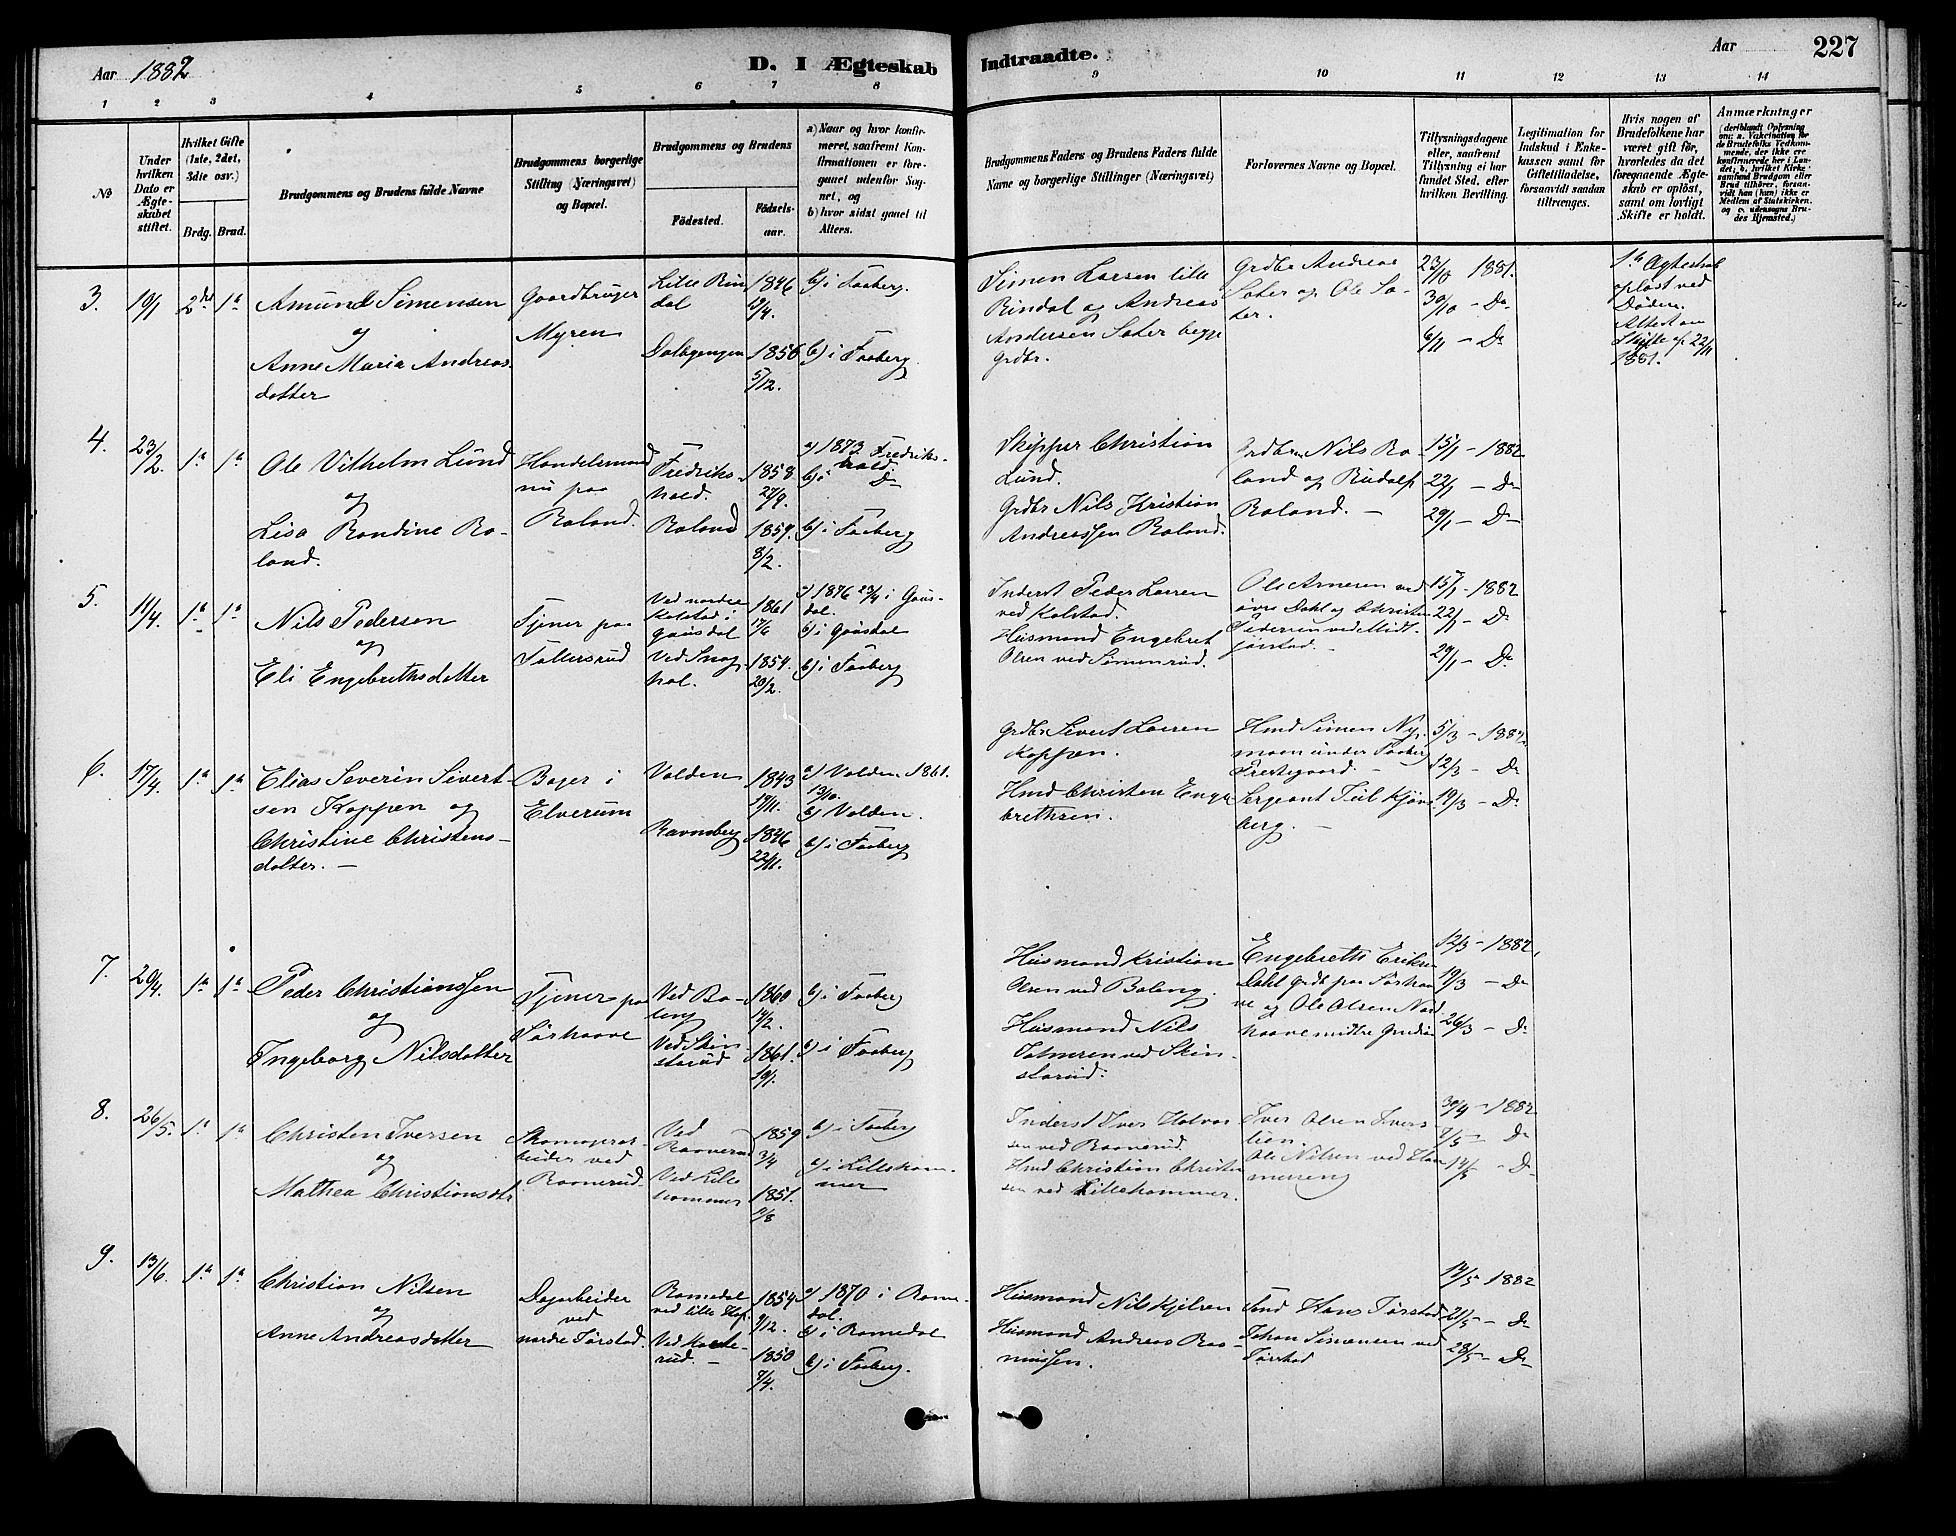 Aar 1882
D. I Ægteskab Indtraadte.
Aar
227
1 2 3 4 5 6 7 8 9 10 11 12 13 14
№
Under hvilken Dato er Ægteskabet stiftet.
Hvilket Gifte (1ste, 2det, 3die osv.)
Brdg. Brud.
Brudgommens og Brudens fulde Navne
Brudgommens borgerlige Stilling (Næringsvei) og Bopæl.
Brudgommens og Brudens
Födested.
Födsels-aar.
a) Naar og hvor konfirmeret, saafremt Konfirmationen er foregaaet udenfor Sognet, og
b) hvor sidst gaaet til Alters.
Brudgommens Faders og Brudens Faders fulde Navne og borgerlige Stillinger (Næringsvei)
Forlovernes Navne og Bopæl.
Tillysningsdagene eller, saafremt Tillysning ei har fundet Sted, efter hvilken Bevilling.
Legitimation for Indskud i Enkekassen samt for Giftetilladelse, forsaavidt saadan tiltrænges.
Hvis nogen af Brudefolkene har været gift för, hvorledes da det foregaaende Ægteskab er oplöst, samt om lovligt Skifte er holdt.
Anmærkninger
(deriblandt Oplysning om: a. Vakcination for de Brudefolks Vedkommende, der ikke ere konfirmerede her i Landet; b. hvilket Kirkesamfund Brudgom eller Brud tilhörer, forsaavidt han (hun) ikke er Medlem af Statskirken, og c. udensogns Brudes Hjemsted.)
3. 19/1 2det 1ste
Amund Simensen
og
Anne Maria Andreas-
datter
Gaardbruger
Myren
Lille Rin-
dal
Dalbgengen
1846
12/4.
1856
5/12.
b) i Faaberg.
b) i Faaberg.
Simen Larsen lille
Rindal og Andreas
Andersen Sæter begge
Grdbr.
Grdbr Andreas
Sæter og Ole Sæ-
ter.
23/10 1881.
30/10 - Do
6/11 - Do
1ste Ægteskab
opløst ved
Døden.
Attest om
Skifte af 22/11
1881.
4. 23/2. 1ste 1ste
Ole Vilhelm Lund
og
Lisa Randine Ro-
land.
Handelsmand
nu paa
Roland.
Fredriks-
hald.
Roland
1858
27/9.
1859.
8/2.
a) 1873 Fredriks-
hald
b) i Do
b) i Faaberg
Skipper Christian
Lund.
Grdbr Nils Kristian
Andreassen Roland.
Grdbr. Nils Ro-
land og Rudolf
Roland. -
15/1 - 1882
22/1 - Do
29/1 - Do
5. 11/4. 1ste 1ste
Nils Pedersen
og
Eli Engebrethsdatter
Tjener paa
Tollersrud
Ved nordre
Kolstad i
Gausdal
Ved Snog-
hal.
1861
17/6
1854.
20/2.
a) 1876 23/4 i Gaus-
dal.
b) i Gausdal
b) i Faaberg
Inderst Peder Larsen
ved Kolstad.
Husmand Engebret
Olsen ved Simenrud.
Ole Arnesen ved
øvre Dahl og Christen
Pedersen ved Midt-
jørstad. -
15/1 - 1882
22/1 - Do
29/1 - Do
6. 17/4. 1ste 1ste
Elias Severin Sivert-
sen Koppen og
Christine Christens-
datter. -
Bager i
Elverum
Volden
Ravnsberg
1843
17/11.
1846
22/11.
a) Volden 1861.
13/10.
b) Volden.
b) i Faaberg
Grdbr Sivert Larsen
Koppen.
Hmd Christen Enge-
brethsen.
Hmd Simen Ny-
moen under Faaberg
Prestegaard. -
Sergeant Juul Kjøns-
berg. -
5/3 - 1882
12/3 - Do
19/3 - Do
7. 20/4. 1ste 1ste
Peder Christianssen
og
Ingeborg Nilsdatter
Tjener paa
Sørhaave
Ved Ba-
leng
Ved Skin-
starud
1860
14/2.
1861.
19/1.
b) i Faaberg
b) i Faaberg
Husmand Kristian
Olsen ved Baleng.
Husmand Nils
Johnsen ved Skin-
starud.
Engebreth Eriksen
Dahl Grdb paa Sørhaa-
ve og Ole Olsen Nord-
haave midtre Grudbr
12/3 - 1882,
19/3 - Do
26/3 - Do
8. 26/5. 1ste 1ste
Christen Iversen
og
Mathea Christiansdtr
Skomagerar-
beider ved
Ravnerud.
Ved
Ravnerud
Ved Lille-
hammer
1859
3/4
1851.
1/8
b) i Faaberg
b) i Lilleham-
mer
Inderst Iver Halvor-
sen ved Ravnerud.
Hmd Christian Christen-
sen ved Lillehammer.
Iver Olsen Ivers-
lien.
Ole Nilsen ved Ham-
mereng
30/4 - 1882
7/5 - Do
14/5 - Do
9. 13/6. 1ste 1ste
Christian Nilsen
og
Anne Andreasdatter
Dagarbeider
ved
nordre Jørstad.
Romedal
ved lille Hof.
Ved Korte-
rud. -
1854
9/12.
1850
9/4.
a) 1870 i Rome-
dal.
b) i Romedal
b) i Faaberg.
Husmand Nils Kjelsen
Husmand Andreas Ras-
mussen.
Hans Jørstad
Johan Simensen ved
Jørstad
14/5 - 1882
21/5 - Do
28/5 - Do